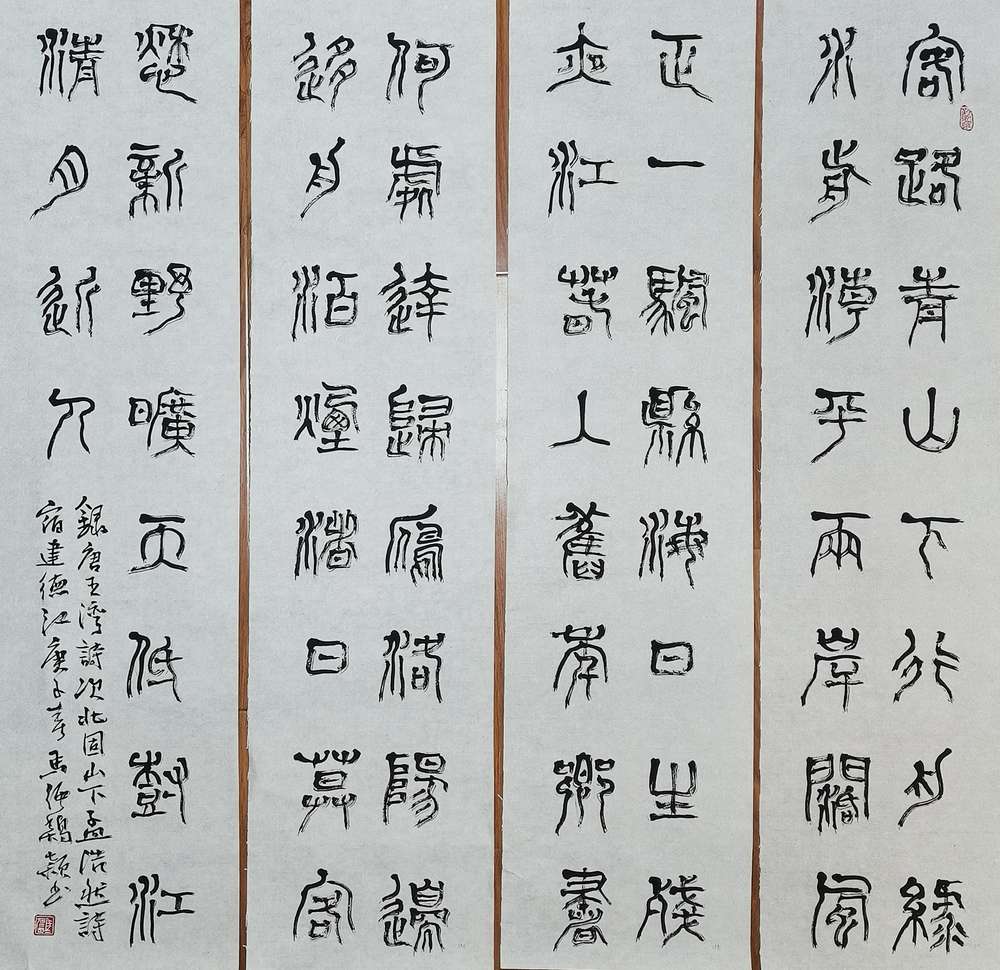 客路青山下行舟綠
水前潮平兩岸闊風
正一颿縣海日生殘
夜江春入舊年鄉書
何處達歸鴈洛陽邊
迻舟泊煙渚日莫客
愁新野曠天低樹江
清月近人
錄唐王灣詩次北固山下孟浩然詩
宿建德江庚子春馬書